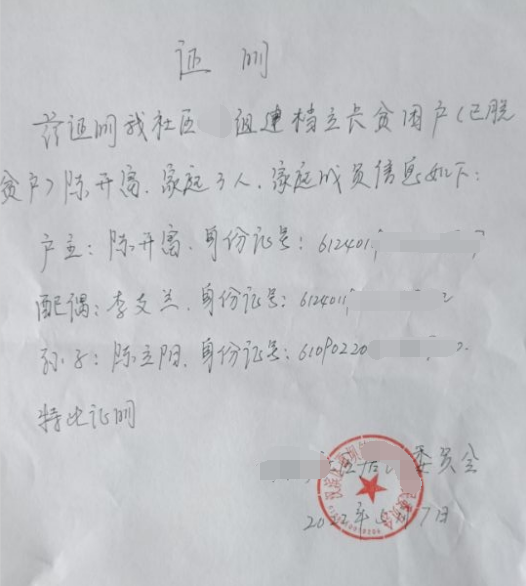 证 明
兹证明我社区 组建档立长贫困户(已脱
贫户)陈开富、家庭3人、家庭成员信息如下:
户主:陈开富、身份证号:612401
配偶:李友兰、身份证号:612401
孙子:陈立阳、身份证号:61090220
特此证明
委员会
2022年 月7日